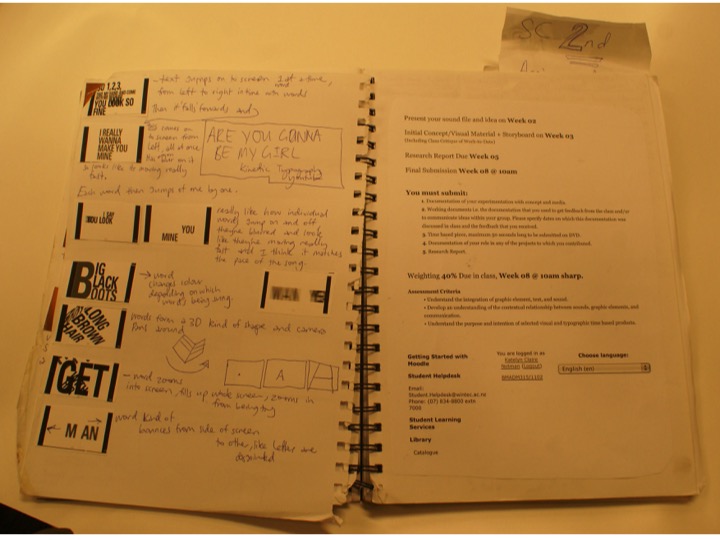 SC 2nd
SO 1,2,3,
YOU LOOK SO
FINE
- text Jumps on to screen 1 at a time,
word
from left to right intime with words
Then it falls forwards and
I REALLY
WANNA
MAKE YOU
MINE
comes on
to screen from
left, all at once
Has blur on it
so looks like its moving really
fast.
ARE YOU GONNA
BE MY GIRL
Kinetic Typography
youtube
Each word then Jumps at me by one.
I SAY
YOU LOOK
YOU
MINE
really like how individual
words Jump on and off
they're blurred and look
like they're moving really
fast and I think it matches
the pace of the song.
BIG
BLACK
BOOTS
→ word
changes colour
depending on which
words being sung.
LONG
BROWN
HAIR
words form a 3D kind of shape and camera
Pans around
GET
- word zooms
into screen, fills up whole screen, zooms in
from being tiny
A
MAN
word kind of
bounces from side of screen
to other, like letter are
Present your sound file and idea on Week 02
Initial Concept/Visual Material + Storyboard on Week 03
(Including Class Critique of Work to Date)
Research Report Due Week 05
Final Submission Week 08 @ 10am
You must submit:
1. Documentation of your experimentation with concept and media.
2. Working documents i.e. the documentation that you used to get feedback from the class and/or
to communicate ideas within your group. Please specify dates on which this documentation was
discussed in class and the feedback that you received.
3. Time based piece, maximum 30 seconds long to be submitted on DVD.
4. Documentation of your role in any of the projects to which you contributed.
5. Research Report.
Weighting 40% Due in class, Week 08 @ 10am sharp.
Assessment Criteria
• Understand the integration of graphic element, text, and sound.
• Develop an understanding of the contextual relationship between sounds, graphic elements, and
communication.
• Understand the purpose and intention of selected visual and typographic time based products.
Getting Started with
Moodle
You are logged in as
(Logout)
Choose language:
English (en)
Student Helpdesk
Email:
Student.Helpdesk@wintec.ac.nz
Phone: (07) 834-8800 extn
7000
Student Learning
Services
Library
Catalogue